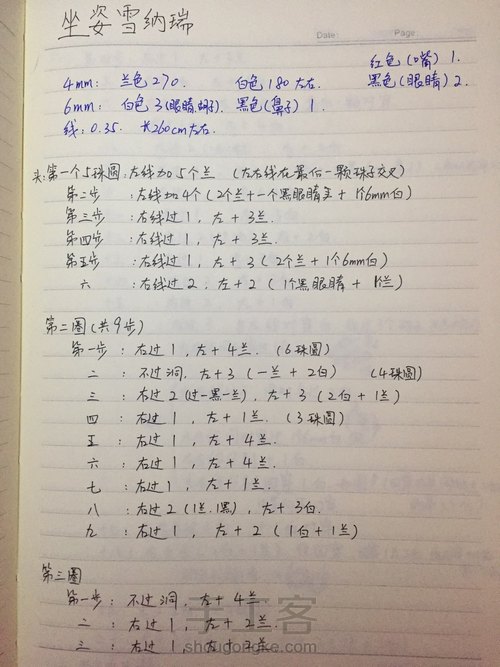 坐姿雪纳瑞
Date: Page:
红色(嘴) 1.
4mm: 兰色270. 白色180左右 黑色(眼睛) 2.
6mm: 白色3(眼睛.胡子). 黑色(鼻子) 1.
线: 0.35. 长260cm左右.
头:第一个5珠圆:左线加5个兰 (左右线在最后一颗珠子交叉)
第二步 :左线加4个(2个兰+一个黑眼睛 + 1个6mm白)
第三步 :右线过1, 左+3兰.
第四步 :右线过1, 左+3兰.
第五步 :右线过1, 左+3(2个兰+1个6mm白)
六 :右线过2, 左+2(1个黑眼睛+1个兰)
第二圈(共9步)
第一步 : 右过1, 左+4兰. (6珠圆)
二 : 不过洞, 左+3(一兰+2白) (4珠圆)
三 : 右过2(过一黑一兰), 左+3(2白+1兰)
四 : 右过1, 左+1兰. (3珠圆)
五 : 右过1, 左+4兰.
六 : 右过1, 左+4兰.
七 : 右过1, 左+1兰.
八 : 右过2(1兰.1黑), 左+3白.
九 : 右过1, 左+2(1白+1兰)
第三圈
第一步 : 不过洞, 左+4兰
二 : 右过1, 左+2兰
三 : 右过1, 左+2兰
手工客
shougongke.com